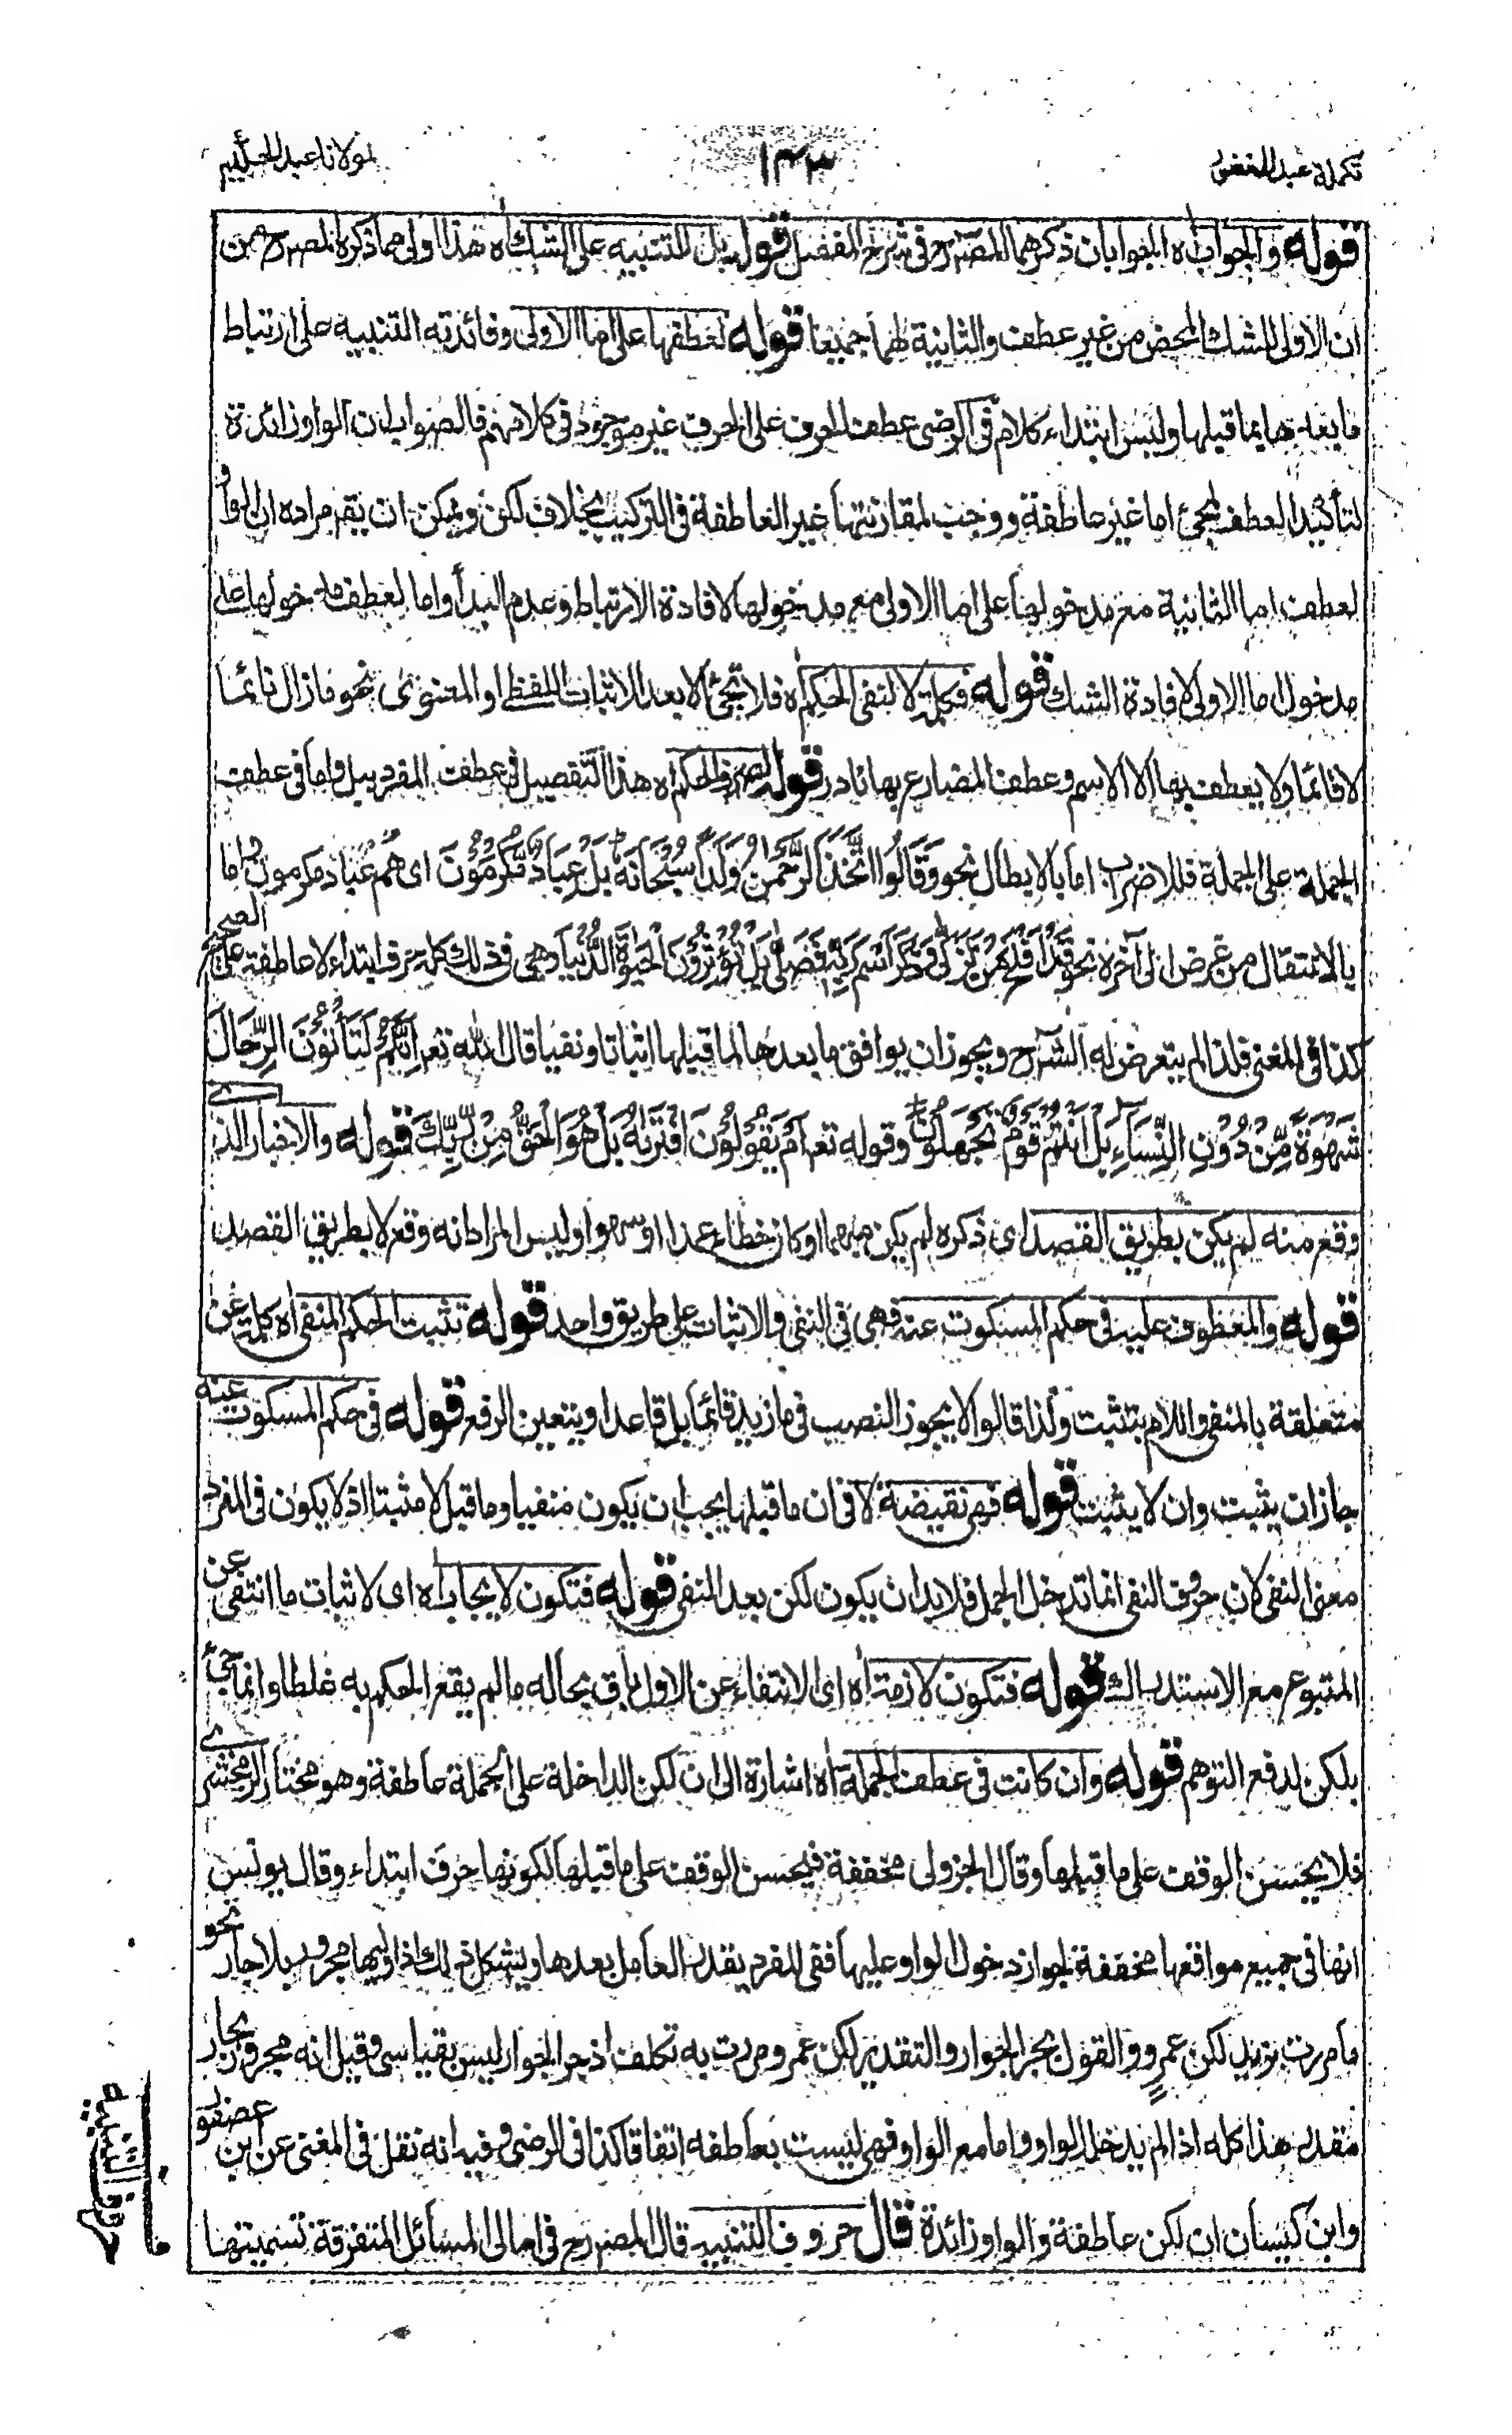 تكملة عبد الغفور
١٤٣
لمولانا عبد الحكيم
قوله والجواب اه الجوابان ذكرهما المصرح فى شرح المفصل قوله بل للتنبيه على الشك اه هذا اولى مما ذكره المصرح من
ان الاولى للشك المحض من غير عطف والثانية لهما جميعا قوله لعطفها على اما الاولى وفائدته التنبيه على ارتباط
ما بعدها بما قبلها وليس ابتداء كلام فى الرضى عطف الحرف على الحرف غير موجود فى كلامهم فالصواب ان الواو زائدة
لتاكيد العطف لمجئ اما غير عاطفة ووجب لمقارنتها غير العاطفة فى التركيب بخلاف لكن ويمكن ان يقر مراده ان الواو
لعطف اما الثانية مع مدخولها على اما الاولى مع مدخولها لافادة الارتباط وعدم البدأ واما لعطف مدخولها على
مدخول اما الاولى لافادة الشك قوله فكلمة لا لنفى الحكم اه فلا تجئ الا بعد الاثبات اللفظے او المعنوى نحو ما زال نائما
لا قائما ولا يعطف بها الا الاسم وعطف المضارع بها نادر قوله لصرف الحكم اه هذا التفصيل فى عطف المفرد ببل واما فى عطف
الجملة على الجملة فللاضراب اما بالابطال نحو وَقَالُوا اتَّخَذَ الرَّحْمٰنُ وَلَدًا سُبْحَانَهٗ بَلْ عِبَادٌ مُّكْرَمُوْنَ اى هم عباد مكرمون واما
بالانتقال من غرض الى آخره نحو قَدْ اَفْلَحَ مَنْ تَزَكّٰى وَذَكَرَ اسْمَ رَبِّهٖ فَصَلّٰى بَلْ تُؤْثِرُوْنَ الْحَيٰوةَ الدُّنْيَا وهى فى ذلك كله حرف ابتداء لا عاطفة على الصحيح
كذا فى المغنى فلذا لم يتعرض له الشرح ويجوز ان يوافق ما بعدها لما قبلها اثباتا ونفيا قال الله تعر اَئِنَّكُمْ لَتَأْتُوْنَ الرِّجَالَ
شَهْوَةً مِّنْ دُوْنِ النِّسَآءِ بَلْ اَنْتُمْ قَوْمٌ تَجْهَلُوْنَ وقوله تعر اَمْ يَقُوْلُوْنَ افْتَرَاهُ بَلْ هُوَ الْحَقُّ مِنْ رَّبِّكَ قوله والاخبار الذى
وقع منه لم يكن بطريق القصد اى ذكره لم يكن مهما او كان خطاء عمدا او سهوا وليس المراد انه وقع لا بطريق القصد
قوله والمعطوف عليه فى حكم المسكوت عنه فهى فى النفى والاثبات على طريق واحد قوله تثبت الحكم المنفى اه كلمة عن
متعلقة بالمنفى واللام بتثبت ولذا قالوا لا يجوز النصب فى ما زيد قائما بل قاعدا ويتعين الرفع قوله فى حكم المسكوت عنه
جاز ان يثبت وان لا يثبت قوله فهى نقيضة لا فى ان ما قبلها يجب ان يكون منفيا وما قبل لا مثبتا اذ لا يكون فى المفرد
معنى النفى لان حروف النفى انما تدخل الجمل فلا بد ان يكون لكن بعد النفى قوله فتكون لايجاب اه اى لاثبات ما انتفى عن
المتبوع مع الاستدراك قوله فتكون لازمة اه اى الانتفاء عن الاول باق بحاله ما لم يقع الحكم به غلطا وانما جئ
بلكن لدفع التوهم قوله وان كانت فى عطف الجملة اه اشارة الى ان لكن الداخلة على الجملة عاطفة وهو مختار الزمخشرى
فلا يحسن الوقف على ما قبلها وقال الجزولى مخففة فيحسن الوقف على ما قبلها لكونها حرف ابتداء وقال يونس
انها فى جميع مواقعها مخففة لجواز دخول الواو عليها ففى المفرد يقدر العامل بعدها ويشكل ذلك اذا وليها مجرور بلا جار نحو
ما مررت بزيد لكن عمرٍو والقول بجر الجوار والتقدير لكن عمرو مررت به تكلف اذ جر الجوار ليس بقياسى وقيل انه مجرور بجار
مقدر هذا كله اذا لم يدخلها الواو واما مع الواو فهى ليست بعاطفه اتفاقا كذا فى الرضى وفيه انه نقل فى المغنى عن ابن عصفور
وابن كيسان ان لكن عاطفة والواو زائدة قال حروف التنبيه قال المصرح فى امالى المسائل المتفرقة تسميتها
حروف التنبيه